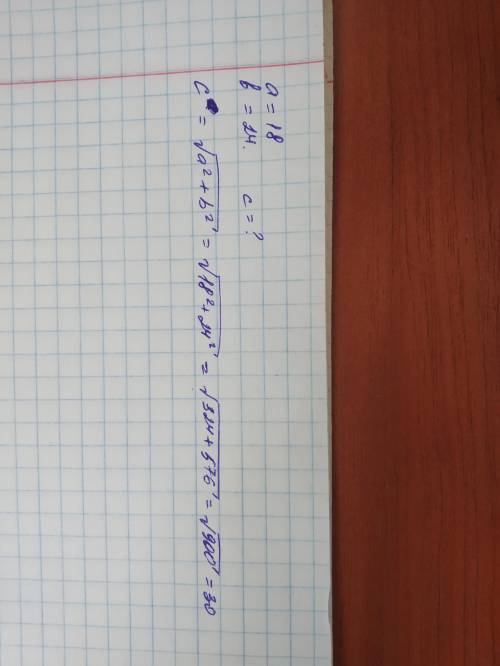 a = 18
b = 24. c = ?
c = √a²+b² = √18²+24² = √324+576 = √900 = 30